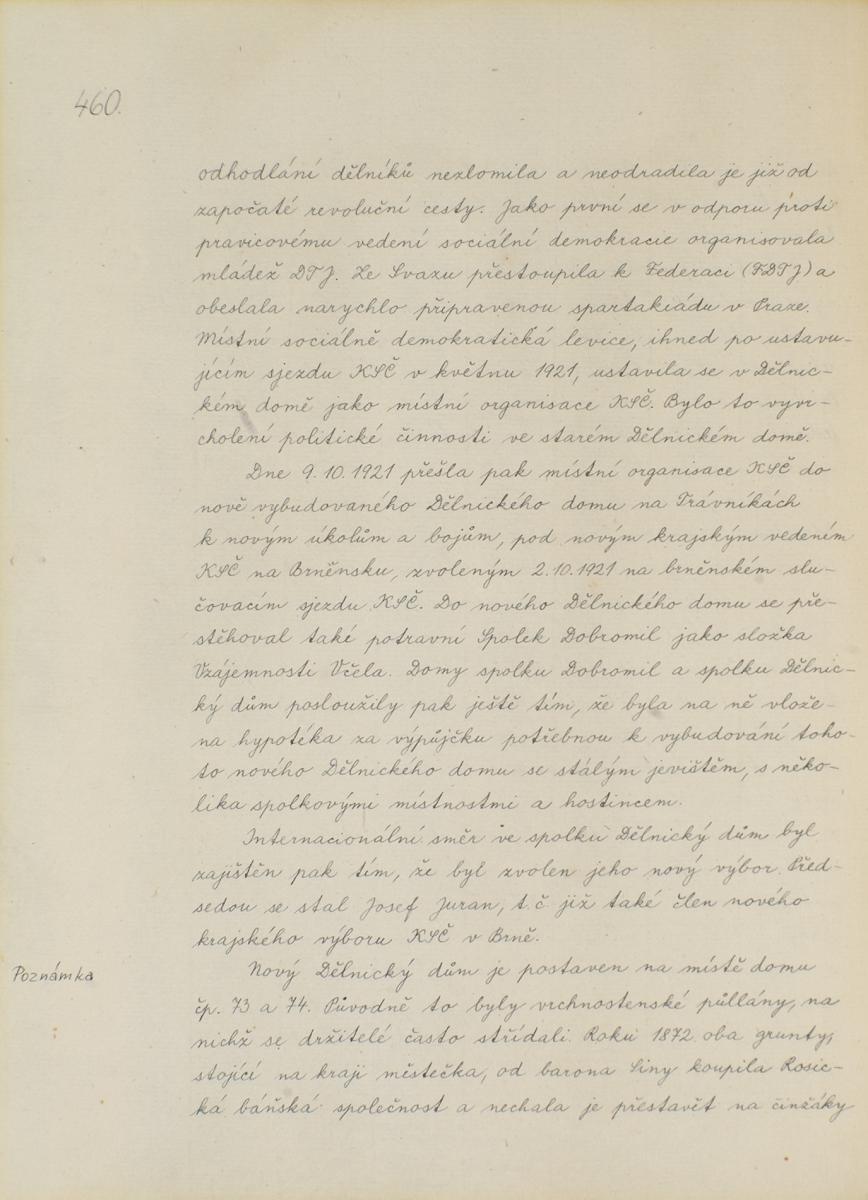 460.
odhodlání dělníků nezlomila a neodradila je již od
započaté revoluční cesty. Jako první se v odporu proti
pravicovému vedení sociální demokracie organisovala
mládež DTJ. Ze Svazu přestoupila k Federaci (FDTJ) a
obeslala narychlo připravenou spartakiádu v Praze.
Místní sociálně demokratická levice, ihned po ustavu-
jícím sjezdu KSČ v květnu 1921, ustavila se v Dělnic-
kém domě jako místní organisace KSČ. Bylo to vyvr-
cholení politické činnosti ve starém Dělnickém domě.
Dne 9.10.1921 přešla pak místní organisace KSČ do
nově vybudovaného Dělnického domu na Trávníkách
k novým úkolům a bojům, pod novým krajským vedením
KSČ na Brněnsku, zvoleným 2.10.1921 na brněnském slu-
čovacím sjezdu KSČ. Do nového Dělnického domu se pře-
stěhoval také potravní Spolek Dobromil jako složka
Vzájemnosti Včela. Domy spolku Dobromil a spolku Dělnic-
ký dům posloužily pak ještě tím, že byla na ně vlože-
na hypotéka za výpůjčku potřebnou k vybudování toho-
to nového Dělnického domu se stálým jevištěm, s něko-
lika spolkovými místnostmi a hostincem.
Internacionální směr ve spolku Dělnický dům byl
zajištěn pak tím, že byl zvolen jeho nový výbor. Před-
sedou se stal Josef Juran, t.č. již také člen nového
krajského výboru KSČ v Brně.
Poznámka Nový Dělnický dům je postaven na místě domu
čp. 73 a 74. Původně to byly vrchnostenské půllány, na
nichž se držitelé často střídali. Roku 1872 oba grunty,
stojící na kraji městečka, od barona Siny koupila Rosic-
ká báňská společnost a nechala je přestavět na činžáky